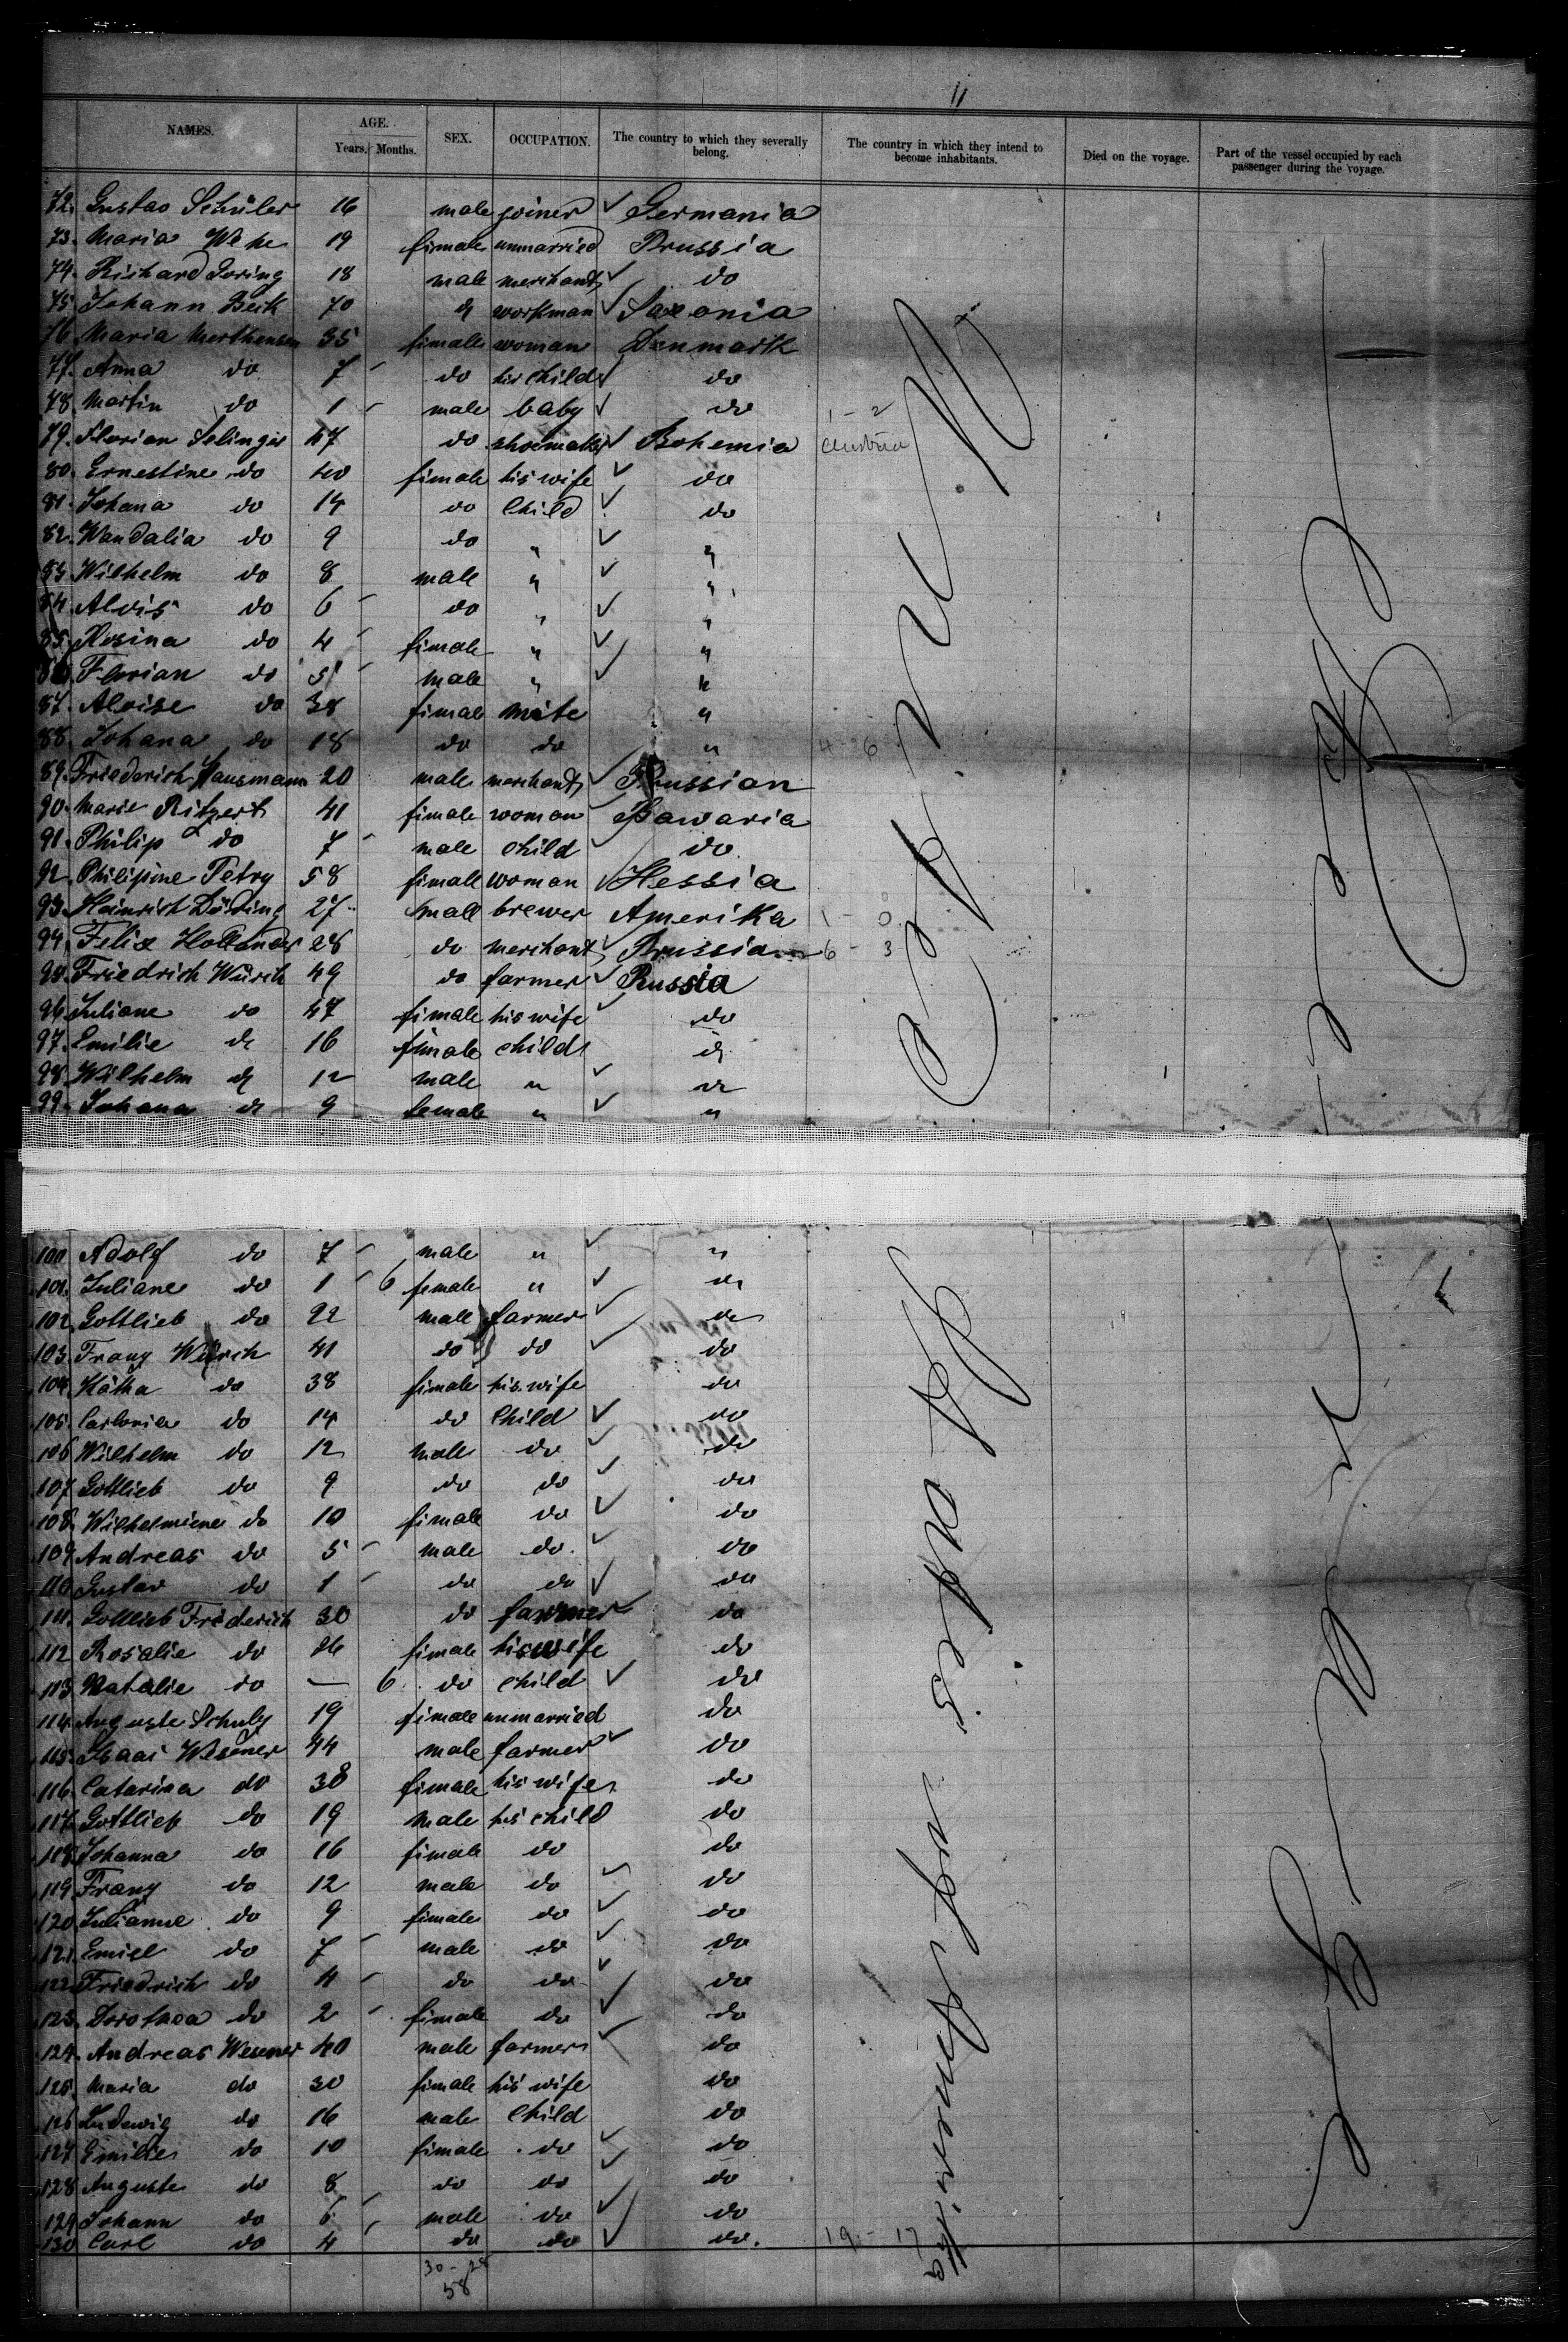 11
NAMES. AGE. Years. Months. SEX. OCCUPATION. The country to which they severally belong. The country in which they intend to become inhabitants. Died on the voyage. Part of the vessel occupied by each passenger during the voyage.
72. Gustav Schüler 16 male joiner ✓ Germania
73. Maria Wehe 19 fimale unmarried Prussia
74. Richard Goring 18 male merchant ✓ do
75. Johann Beck 70 do workman ✓ Saxonia
76. Maria Merthensen 35 fimale woman Denmark
77. Anna do 7 do his child ✓ do
78. Martin do 1 male baby ✓ do 1 - 2
79. Florian Selinger 47 do shoemaker ✓ Bohemia Austria
80. Ernestine do 40 fimale his wife ✓ do
81. Johana do 14 do Child ✓ do
82. Wandalia do 9 do " ✓ "
83. Wilhelm do 8 male " ✓ "
84. Alois do 6 do " ✓ "
85. Rosina do 4 fimale " ✓ "
86. Florian do 5 male " ✓ "
87. Aloise do 38 fimale "
88. Johana do 18 do do " 4 - 26
89. Friederich Hausmann 20 male merchant ✓ Prussian
90. Marie Ritzert 41 fimale woman Bawaria
91. Philip do 7 male child ✓ do
92. Philipine Petry 58 fimale woman ✓ Hessia
93. Heinrich Döring 27 male brewer Amerika 1 - 0
94. Felix Hollander 28 do merchant ✓ Prussia 6 - 3
95. Friedrich Würch 49 do farmer ✓ Russia
96. Juliane do 47 fimale his wife ✓ do
97. Emilie do 16 fimale child do
98. Wilhelm do 12 male " ✓ do
99. Johana do 9 female " ✓ "
100 Adolf do 7 male " ✓ "
101. Juliane do 1 6 female " ✓ do
102. Gottlieb do 22 male farmer ✓ do
103. Franz Würch 41 do do ✓ do
104. Kätha do 38 fimale his wife do
105. do 14 do Child ✓ do
106 Wilhelm do 12 male do ✓ do
107 Gottlieb do 9 do do ✓ do
108. Wilhelmiene do 10 fimale do ✓ do
109 Andreas do 5 male do ✓ do
110 Gustav do 1 do do ✓ do
111. Gottlieb Friderich 30 do farmer ✓ do
112 Rosalie do 26 fimale his wife do
113 Natalie do — 6 do child ✓ do
114. Auguste Schulz 19 fimale unmarried do
115. Isaac Wesener 44 male farmer ✓ do
116. Catarina do 38 fimale his wife do
117. Gottlieb do 19 male his child do
118. Johanna do 16 fimale do do
119 Franz do 12 male do ✓ do
120 Julianne do 9 fimale do ✓ do
121. Emisl do 7 male do ✓ do
122 Friedrich do 4 do do ✓ do
123. Dorothea do 2 fimale do ✓ do
124. Andreas Wesener 40 male farmer ✓ do
125. Maria do 30 fimale his wife do
126 Ludewig do 16 male Child do
127 Emilie do 10 fimale do ✓ do
128 Auguste do 8 do do ✓ do
129 Johann do 6 male do ✓ do
130 Carl do 4 do do ✓ do. 19 - 17
30 - 28
58
United States of America
Steerage